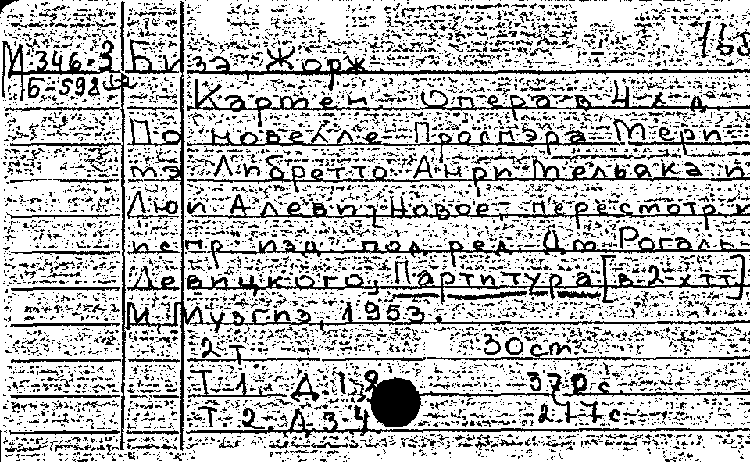 М 346-3 Бизэ, Жорж.
Б-598
Кармен. Опера в 4-х д.
По новелле Проспэра Мери-
мэ. Либретто Анри Мельака и
Люи Алеви, Новое, пересмотр. и
испр. изд. под ред. Дм. Рогаль-
Левицкого, Партитура [в 2-х тт]
М., Музгиз, 1953.
2 т. 30 cm.
Т. 1. Д. 1,2 370 с.
Т. 2. Д. 3-4 277 с